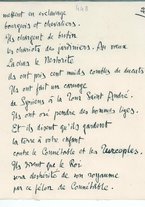 mettent en esclavage
bourgeois et chevaliers.
Ils chargent de butin
les chariots des jardiniers. Au vieux
Lazare le Nestorite
ils ont pris cent muids combles de ducats
Ils ont fait un carnage
de Syriens à la Tour Saint André.
Ils ont osé pendre des hommes liges.
Et ils disent qu'ils gardent
la terre à votre enfant
contre le Connétable et les Turcoples.
Ils disent que le Roi
sera déshérité de son royaume
par ce félon de Connétable.